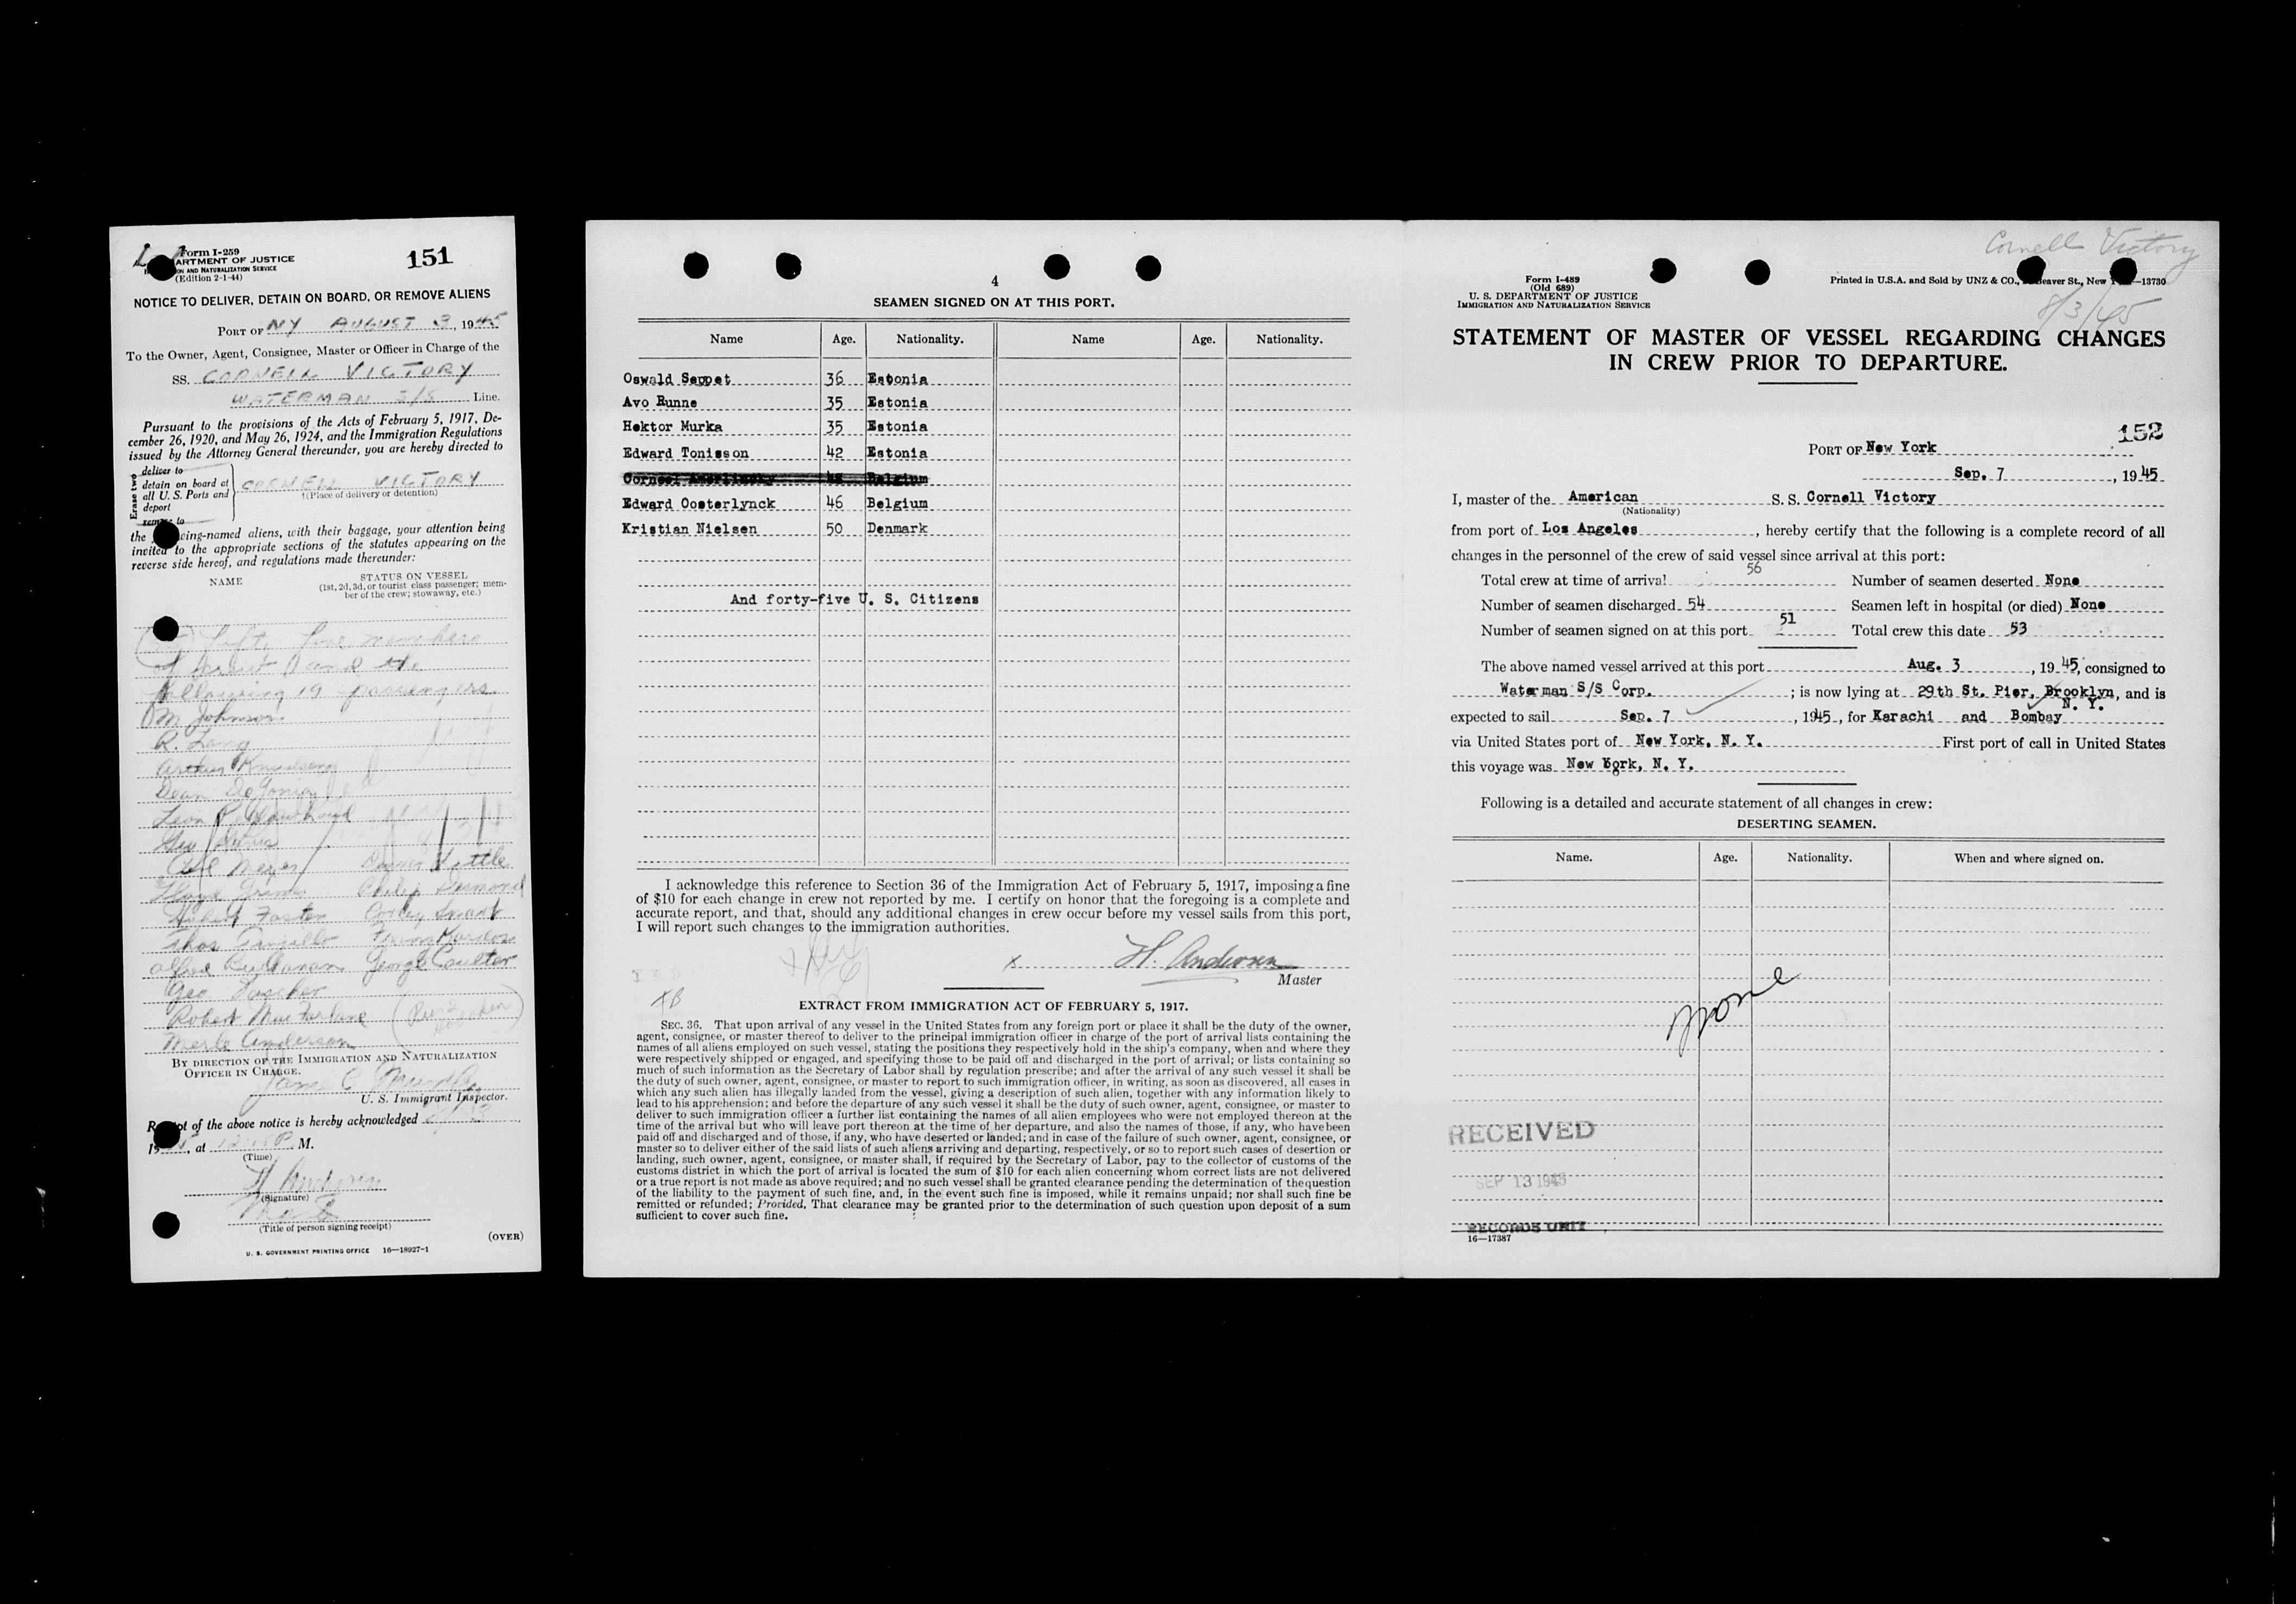 Form I-259
ARTMENT OF JUSTICE
ON AND NATURALIZATION SERVICE
(Edition 2-1-44)
151
NOTICE TO DELIVER, DETAIN ON BOARD, OR REMOVE ALIENS
PORT OF NY AUGUST 3, 1945
To the Owner, Agent, Consignee, Master or Officer in Charge of the
SS. CORNELL VICTORY
WATERMAN S/S Line.
Pursuant to the provisions of the Acts of February 5, 1917, De-
cember 26, 1920, and May 26, 1924, and the Immigration Regulations
issued by the Attorney General thereunder, you are hereby directed to
Erase two
deliver to
detain on board at
all U. S. Ports and
deport
remove to
CORNELL VICTORY
(Place of delivery or detention)
the wing-named aliens, with their baggage, your attention being
invited to the appropriate sections of the statutes appearing on the
reverse side hereof, and regulations made thereunder:
NAME
STATUS ON VESSEL
(1st, 2d, 3d, or tourist class passenger; mem-
ber of the crew; stowaway, etc.)
fifty five members
of crew and the
following 19 passengers
M Johnson
R. Lang
Arthur Knudsen
Dean DeGonia
Leon R.
Carl Meyer Kattle
Floyd Grim Philip Desmond
Hubert Foster Corley Smart
Thos
Alfred Buchanan George Coulter
Geo Fascher
Robert MacFarlane
Merle Anderson
BY DIRECTION OF THE IMMIGRATION AND NATURALIZATION
OFFICER IN CHARGE.
James C Murphy
U. S. Immigrant Inspector.
R pt of the above notice is hereby acknowledged 8/3
19 , at M.
(Time)
H Andersen
(Signature)
Master
(Title of person signing receipt)
(OVER)
U. S. GOVERNMENT PRINTING OFFICE 16—18927-1
4
SEAMEN SIGNED ON AT THIS PORT.
Name Age. Nationality. Name Age. Nationality.
Oswald Seppet 36 Estonia
Avo Runne 35 Estonia
Hektor Murka 35 Estonia
Edward Tonisson 42 Estonia
Belgium
Edward Oosterlynck 46 Belgium
Kristian Nielsen 50 Denmark
And forty-five U. S. Citizens
I acknowledge this reference to Section 36 of the Immigration Act of February 5, 1917, imposing a fine
of $10 for each change in crew not reported by me. I certify on honor that the foregoing is a complete and
accurate report, and that, should any additional changes in crew occur before my vessel sails from this port,
I will report such changes to the immigration authorities.
x H. Andersen
Master
EXTRACT FROM IMMIGRATION ACT OF FEBRUARY 5, 1917.
SEC. 36. That upon arrival of any vessel in the United States from any foreign port or place it shall be the duty of the owner,
agent, consignee, or master thereof to deliver to the principal immigration officer in charge of the port of arrival lists containing the
names of all aliens employed on such vessel, stating the positions they respectively hold in the ship's company, when and where they
were respectively shipped or engaged, and specifying those to be paid off and discharged in the port of arrival; or lists containing so
much of such information as the Secretary of Labor shall by regulation prescribe; and after the arrival of any such vessel it shall be
the duty of such owner, agent, consignee, or master to report to such immigration officer, in writing, as soon as discovered, all cases in
which any such alien has illegally landed from the vessel, giving a description of such alien, together with any information likely to
lead to his apprehension; and before the departure of any such vessel it shall be the duty of such owner, agent, consignee, or master to
deliver to such immigration officer a further list containing the names of all alien employees who were not employed thereon at the
time of the arrival but who will leave port thereon at the time of her departure, and also the names of those, if any, who have been
paid off and discharged and of those, if any, who have deserted or landed; and in case of the failure of such owner, agent, consignee, or
master so to deliver either of the said lists of such aliens arriving and departing, respectively, or so to report such cases of desertion or
landing, such owner, agent, consignee, or master shall, if required by the Secretary of Labor, pay to the collector of customs of the
customs district in which the port of arrival is located the sum of $10 for each alien concerning whom correct lists are not delivered
or a true report is not made as above required; and no such vessel shall be granted clearance pending the determination of the question
of the liability to the payment of such fine, and, in the event such fine is imposed, while it remains unpaid; nor shall such fine be
remitted or refunded; Provided, That clearance may be granted prior to the determination of such question upon deposit of a sum
sufficient to cover such fine.
Cornell Victory
8/3/45
Form I-489
(Old 689)
U. S. DEPARTMENT OF JUSTICE
IMMIGRATION AND NATURALIZATION SERVICE
Printed in U.S.A. and Sold by UNZ & CO., eaver St., New Y —13730
STATEMENT OF MASTER OF VESSEL REGARDING CHANGES
IN CREW PRIOR TO DEPARTURE.
152
PORT OF New York
Sep. 7, 1945
I, master of the American S. S. Cornell Victory
(Nationality)
from port of Los Angeles, hereby certify that the following is a complete record of all
changes in the personnel of the crew of said vessel since arrival at this port:
Total crew at time of arrival 56 Number of seamen deserted None
Number of seamen discharged 54 Seamen left in hospital (or died) None
Number of seamen signed on at this port 51 Total crew this date 53
The above named vessel arrived at this port Aug. 3, 1945, consigned to
Waterman S/S Corp.; is now lying at 29th St. Pier, Brooklyn, and is
N. Y.
expected to sail Sep. 7, 1945, for Karachi and Bombay
via United States port of New York, N. Y. First port of call in United States
this voyage was New York, N. Y.
Following is a detailed and accurate statement of all changes in crew:
DESERTING SEAMEN.
Name. Age. Nationality. When and where signed on.
None
RECEIVED
SEP 13 1945
RECORDS UNIT
16—17387